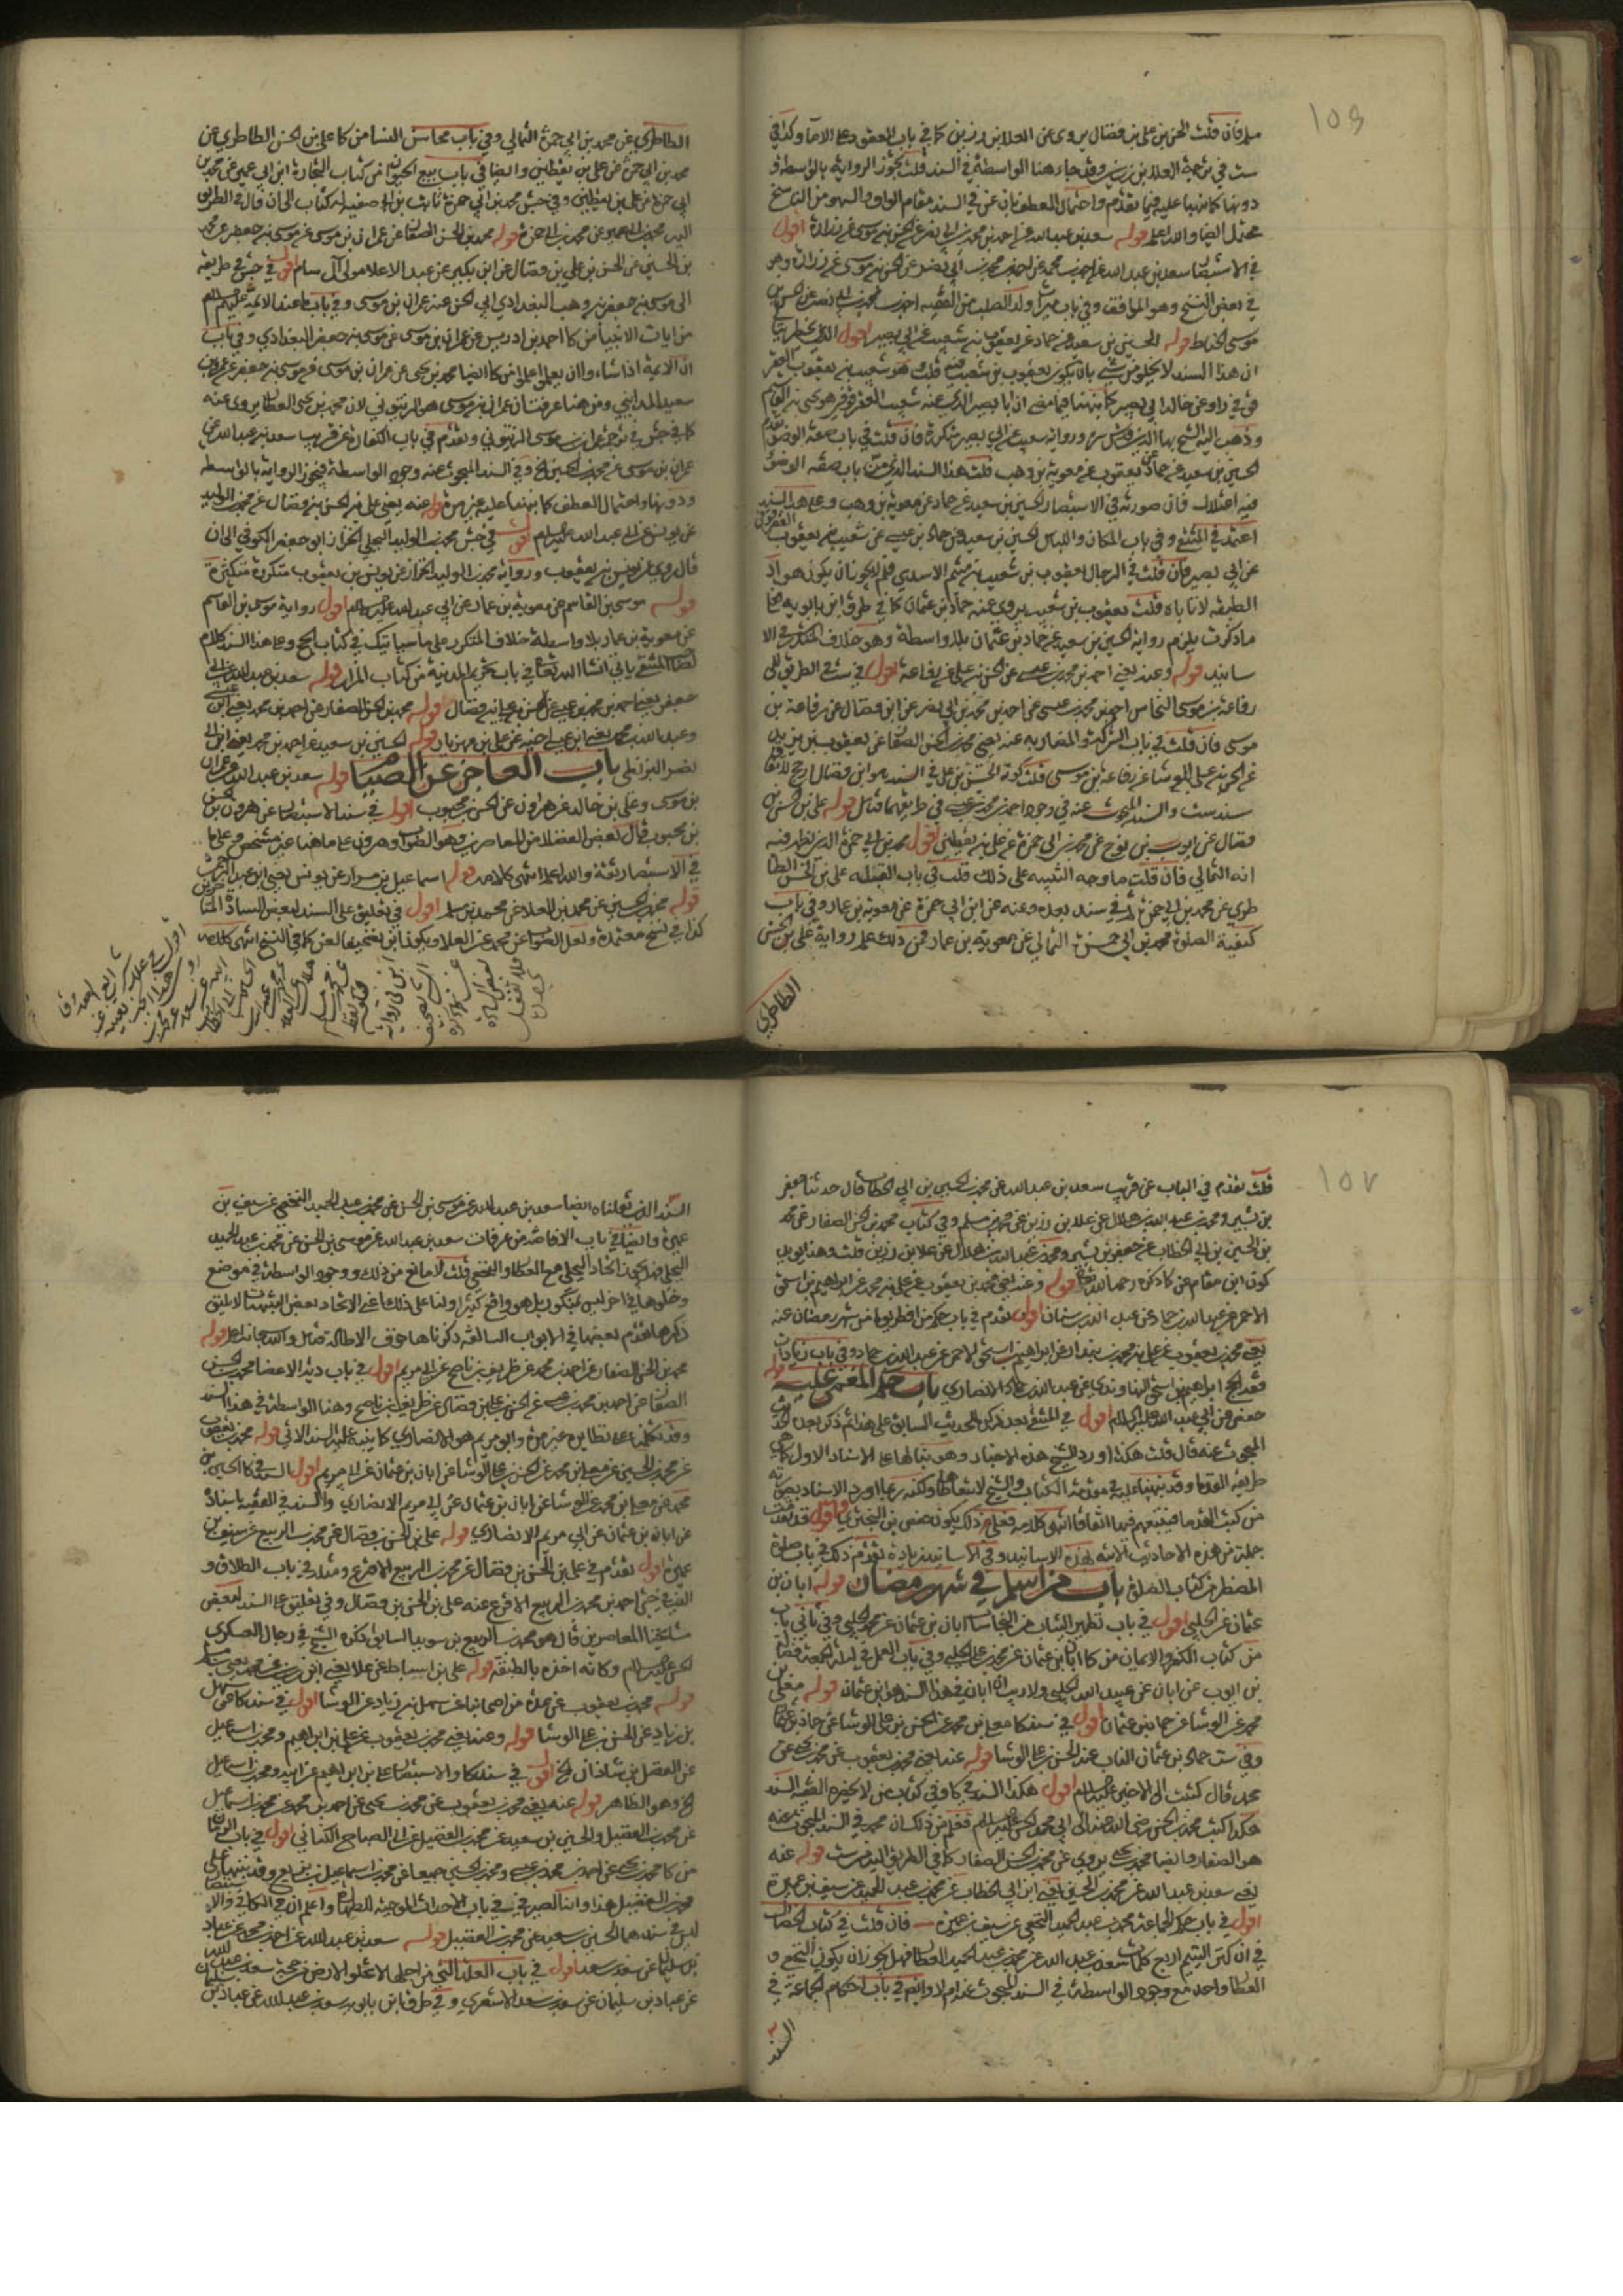 ١٥٩
سلم فان قلت الحسن بن على بن فضال يروى عن العلا بن رزين كما في باب العقود على الاماء وكذا في
ست في ترجمة العلا بن رزين وقد جاء هنا الواسطة في السند قلت يجوز الرواية بالواسطة و
دونها كما نبهنا عليه فيما تقدم واحتمال العطف بان عن في السند مقام الواو والسهو من الناسخ
محتمل ايضا والله اعلم قوله سعد بن عبد الله عن احمد بن محمد بن ابي نصر عن الحسن بن موسى عن زرارة اقول
في الاستبصار سعد بن عبد الله عن احمد بن محمد عن احمد بن محمد بن ابي نصر عن الحسن بن موسى عن زرارة وهو
في بعض النسخ وهو الموافق وفي باب ميراث ولد الصلب من الفقيه احمد بن محمد بن ابي نصر عن الحسن بن
موسى الحناط قوله الحسين بن سعيد عن حماد عن يعقوب بن شعيب عن ابي بصير اقول الذي يخطر ببالي
ان هذا السند لا يخلو من شيء بان يكون يعقوب بن شعيب قلب وهو شعيب بن يعقوب العقر
قوفي راو عن خاله ابي بصير كما نبهنا فيما مضى ان ابا بصير الذي عنه شعيب العقرقوفي هو يحيى بن القاسم
وذهب اليه الشيخ بهاء الدين قدس سره ورواية شعيب عن ابي بصير متكررة فان قلت في باب صفة الوضوء تقدم
الحسين بن سعيد عن حماد عن يعقوب عن معوية بن وهب قلت هذا السند الذي من باب صفة الوضوء
فيه اختلال فان صورته في الاستبصار الحسين بن سعيد عن حماد عن معوية بن وهب وعلى هذا السند
اعتمد في المنتقى وفي باب المكان واللباس الحسين بن سعيد عن حماد بن عيسى عن شعيب بن يعقوب العقرقوفي
عن ابي بصير فان قلت في الرجال يعقوب بن شعيب بن ميثم الاسدي فلم لا يجوز ان يكون هو اذ
الطبقة لا تاباه قلت يعقوب بن شعيب يروي عنه حماد بن عثمان كما في طرق ابن بابويه فعلى
ما ذكرت يلزم رواية الحسين بن سعيد عن حماد بن عثمان بلا واسطة وهو خلاف المتكثر في الا
سانيد قوله وعنه يعني احمد بن محمد بن عيسى عن الحسن بن علي عن رفاعة اقول في ست في الطريق الى
رفاعة بن موسى النخاس احمد بن محمد بن عيسى عن احمد بن محمد بن ابي نصر عن ابن فضال عن رفاعة بن
موسى فان قلت في باب الشركة والمضاربة عنه يعني محمد بن الحسن الصفار عن يعقوب بن يزيد
عن الحسن بن علي الوشا عن رفاعة بن موسى قلت كون الحسن بن علي في السند هو ابن فضال ارجح
سند ست والسند المبحوث عنه في وجود احمد بن محمد بن عيسى في طريقهما فتامل قوله علي بن الحسن بن
فضال عن ايوب بن نوح عن محمد بن ابي حمزة عن علي بن يقطين اقول محمد بن ابي حمزة الذي يظهر فيه
انه الثمالي فان قلت ما وجه التنبيه على ذلك قلت في باب القبلة علي بن الحسن الطا
طري عن محمد بن ابي حمزة وفي سند بعده وعنه عن ابن ابي حمزة عن معوية بن عمار وفي باب
كيفية الصلوة محمد بن ابي حمزة الثمالي عن معوية بن عمار فمن ذلك علم رواية علي بن الحسن
الطاطري
الطاطري عن محمد بن ابي حمزة الثمالي وفي باب محاسن النساء من كا علي بن الحسن الطاطري عن
محمد بن ابي حمزة عن علي بن يقطين وايضا في باب بيع الحيوان من كتاب التجارة ابن ابي عمير عن محمد بن
ابي حمزة عن علي بن يقطين وفي جش محمد بن ابي حمزة ثابت بن ابي صفية له كتاب الى ان قال في الطريق
اليه محمد بن ابي عمير عن محمد بن ابي حمزة قوله محمد بن الحسن الصفار عن عمران بن موسى عن موسى بن جعفر عن محمد
بن الحسين عن الحسن بن علي بن فضال عن ابن بكير عن عبد الاعلا مولى آل سام اقول في جش في طريقه
الى موسى بن جعفر بن وهب البغدادي ابي الحسن عنه عمران بن موسى وفي باب ما عند الائمة عليهم السلام
من ايات الانبياء من كا احمد بن ادريس عن عمران بن موسى عن موسى بن جعفر البغدادي وفي باب
ان الائمة اذا شاءوا ان يعلموا علموا من كا ايضا محمد بن يحيى عن عمران بن موسى عن موسى بن جعفر عن عمرو بن
سعيد المدايني ومن هنا عرفت ان عمران بن موسى هو الزيتوني لان محمد بن يحيى العطار يروى عنه
كما في جش في ترجمة عمران بن موسى الزيتوني وتقدم في باب الكفارة عن قريب سعد بن عبد الله عن
عمران بن موسى عن محمد بن الحسين الخ وفي السند المبحوث عنه وجود الواسطة فيجوز الرواية بالواسطة
ودونها واحتمال العطف كما نبهنا عليه غير مرة قوله عنه يعني علي بن الحسن بن فضال عن محمد بن الوليد
عن يونس عن ابي عبد الله عليه السلام اقول في جش محمد بن الوليد البجلي الخزاز ابو جعفر الكوفي الى ان
قال روى عن يونس بن يعقوب ورواية محمد بن الوليد الخزاز عن يونس بن يعقوب متكررة متكثرة
قوله موسى بن القاسم عن معوية بن عمار عن ابي عبد الله عليه السلام اقول رواية موسى بن القاسم
عن معوية بن عمار بلا واسطة خلاف المتكرر على ما سياتيك في كتاب الحج وعلى هذا السند كلام
لصاحب المنتقى ياتي انشاء الله تعالى في باب تحريم المدينة من كتاب المزار قوله سعد بن عبد الله عن ابي
جعفر يعني احمد بن محمد بن عيسى عن الحسن بن علي بن فضال قوله محمد بن الحسن الصفار عن احمد بن محمد يعني ابن عيسى
وعبد الله بن محمد يعني ابن عيسى اخيه عن علي بن مهزيار قوله الحسين بن سعيد عن احمد بن محمد يعني ابن ابي
نصر البزنطي باب العاجز عن الصيام قوله سعد بن عبد الله عن عمران
بن موسى وعلي بن خالد عن هارون عن الحسن بن محبوب اقول في سند الاستبصار عن هرون بن الحسن
بن محبوب قال بعض الفضلا من المعاصرين وهو الصواب وهرون على ما هنا غير مشخص وعلى ما
في الاستبصار ثقة والله اعلم انتهى كلامه قوله اسماعيل بن مرار عن يونس يعني ابن عبد الرحمن
قوله محمد بن الحسين عن محمد بن العلا عن محمد بن مسلم اقول في تعليق على السند لبعض السادة المتاخرين
كذا في نسخ معتمدة ولعل الصواب عن محمد عن العلا ويكون ابن تصحيفا لعن كما في النسخ انتهى كلامه
١٥٧
قلت تقدم في الباب عن قريب سعد بن عبد الله عن محمد بن الحسين بن ابي الخطاب قال حدثنا جعفر
بن بشير ومحمد بن عبد الله بن هلال عن علا بن رزين عن محمد بن مسلم وفي كتاب محمد بن الحسن الصفار عن محمد
بن الحسين بن ابي الخطاب عن جعفر بن بشير ومحمد بن عبد الله بن هلال عن علا بن رزين قلت وهذا يؤيد
كون ابن مقام عن كما ذكره رحمه الله قوله وعنه اعني محمد بن يعقوب عن علي بن محمد عن ابراهيم بن اسحق
الاحمر عن عبد الله بن حماد عن عبد الله بن سنان اقول تقدم في باب حكم من افطر يوما من شهر رمضان عنه
يعني محمد بن يعقوب عن علي بن محمد بن بندار عن ابراهيم بن اسحق الاحمر عن عبد الله بن حماد وفي باب زيادات
فقه الحج ابراهيم بن اسحق النهاوندي عن عبد الله بن حماد الانصاري باب حكم المغمى عليه قوله
حفص عن ابي عبد الله عليه السلام اقول في المنتقى بعد ذكر الحديث السابق على هذا ثم ذكر بعده الحديث
المبحوث عنه قال قلت هكذا اورد الشيخ هذه الاخبار وهو بناء لها على الاسناد الاول كما هي
طريقة القدما وقد نبهنا عليه في مقدمة الكتاب
من كتب القدما فيتبعهم فيها اتفاقا انتهى كلامه فعلى ذلك يكون حفص بن البختري قلت قد تقدمت
جملة من هذه الاحاديث الاتية بهذه الاسانيد وفي الاسانيد زيادة تقدم ذلك في باب صلوة
المضطر من كتاب الصلوة باب من اسلم في شهر رمضان قوله ابان بن
عثمان عن الحلبي اقول في باب تطهير الثياب من النجاسات ابان بن عثمان عن محمد الحلبي وفي ثاني باب
من كتاب الكفر والايمان من كا ابان بن عثمان عن محمد بن علي الحلبي وفي باب العمل في ليلة الجمعة فضالة
بن ايوب عن ابان عن عبيد الله الحلبي ولا ريب ان ابان في هذا السند هو ابن عثمان قوله معلى بن
محمد عن الوشا عن حماد بن عثمان اقول في سند كا معلى بن محمد عن الحسن بن علي الوشا عن حماد بن عثمان
وفي ست حماد بن عثمان الناب عنه الحسن بن علي الوشا قوله عنه اعني محمد بن يعقوب عن محمد بن يحيى عن
محمد قال كتبت الى الاخير عليه السلام اقول هكذا السند في كا وفي كتاب من لا يحضره الفقيه السند
هكذا كتب محمد بن الحسن رضي الله عنه الى ابي محمد الحسن عليه السلام فعلم من ذلك ان محمد في السند المبحوث عنه
هو الصفار وايضا محمد بن يحيى يروي عن محمد بن الحسن الصفار كما في الطريق اليه من ست قوله عنه
يعني سعد بن عبد الله عن محمد بن الحسين يعني ابن ابي الخطاب عن محمد بن عبد الحميد عن سيف بن عميرة
اقول في باب حكم الجماعة محمد بن عبد الحميد النخعي عن سيف بن عميرة فان قلت في كتاب الخصال
في ان كنز اليتيم اربع كلمات سعد بن عبد الله عن محمد بن عبد الحميد العطار فهل يجوز ان يكون النخعي و
العطار واحد مع وجود الواسطة في السند المبحوث عنه ام لا وايضا في باب احكام الجماعة في
السند
السند الذي نقلناه ايضا سعد بن عبد الله عن موسى بن الحسن عن محمد بن عبد الحميد النخعي عن سيف بن
عميرة وايضا في باب الافاضة من عرفات سعد بن عبد الله عن موسى بن الحسن عن محمد بن عبد الحميد
البجلي فهل يجوز اتحاد البجلي مع العطار والنخعي قلت لا مانع من ذلك ووجود الواسطة في موضع
وخلوها في اخر ليس بمنكور بل هو واقع كثيرا ولنا على ذلك اعني الاتحاد بعض التنبيهات لا يليق
ذكرها تقدم بعضها في الابواب السالفة ذكرناها خوف الاطالة فتامل والله سبحانه اعلم قوله
محمد بن الحسن الصفار عن احمد بن محمد عن ظريف بن ناصح عن ابي مريم اقول في باب دية الاعضاء محمد بن الحسن
الصفار عن احمد بن محمد بن عيسى عن الحسن بن علي بن فضال عن ظريف بن ناصح وهنا الواسطة في هذا السند
وقد تكلمنا على نظائره غير مرة وابو مريم هو الانصاري كما ينبه عليه السند الاتي قوله محمد بن يعقوب
عن محمد بن الحسين عن معلى بن محمد عن الحسن بن علي الوشا عن ابان بن عثمان عن ابي مريم اقول السند في كا الحسين بن
محمد عن معلى بن محمد عن الوشا عن ابان بن عثمان عن ابي مريم الانصاري والسند في الفقيه باسناده
عن ابان بن عثمان عن ابي مريم الانصاري قوله علي بن الحسن بن فضال عن محمد بن الربيع عن سيف بن
عميرة اقول تقدم في علي بن الحسن بن فضال عن محمد بن الربيع الاقرع ومثله في باب الطلاق و
الذي في جش احمد بن محمد بن الربيع الاقرع عنه علي بن الحسن بن فضال وفي تعليق على السند لبعض
مشايخنا المعاصرين قال هو محمد بن الربيع بن سويد السائي ذكره الشيخ في رجال العسكري
الحسن عليه السلام وكانه اخذه بالطبقة قوله علي بن اسباط عن علا يعني ابن رزين عن محمد يعني ابن مسلم
قوله محمد بن يعقوب عن عدة من اصحابنا عن سهل بن زياد عن الوشا اقول في سند كا عن سهل
بن زياد عن الحسن بن علي الوشا قوله وعنه يعني محمد بن يعقوب عن علي بن ابراهيم ومحمد بن اسماعيل
عن الفضل بن شاذان الخ اقول في سند كا والاستبصار علي بن ابراهيم عن ابيه ومحمد بن اسماعيل
الخ وهو الظاهر قوله عنه يعني محمد بن يعقوب عن محمد بن يحيى عن احمد بن محمد عن محمد بن اسماعيل
عن محمد بن الفضيل والحسين بن سعيد عن محمد بن الفضيل عن ابي الصباح الكناني اقول في باب
من كا محمد بن يحيى عن احمد بن محمد بن عيسى ومحمد بن الحسين جميعا عن محمد بن اسماعيل بن بزيع وقد نبهنا على
محمد بن الفضيل هذا وانه الصيرفي في باب الاحداث الموجبة للطهارة واعلم ان في الكافي والا
لم يكن في سندهما الحسين بن سعيد عن محمد بن الفضيل قوله سعد بن عبد الله عن احمد بن محمد عن عباد
بن سليمان عن سعد بن سعد اقول في باب العلة التي من اجلها لا تخلو الارض من حجة سعد بن عبد الله
عن عباد بن سليمان عن سعد بن سعد الاشعري وفي طرق ابن بابويه سعد بن عبد الله عن عباد بن